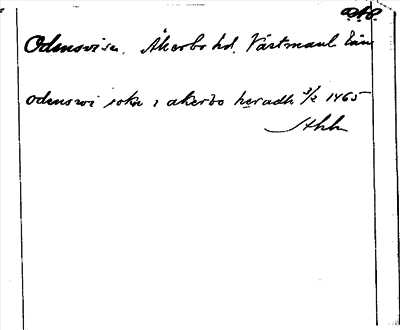 Odensvi sn. Åkerbo hd. Västmanl. län
odenswi sokn i akerbo hæradh 3/2 1465